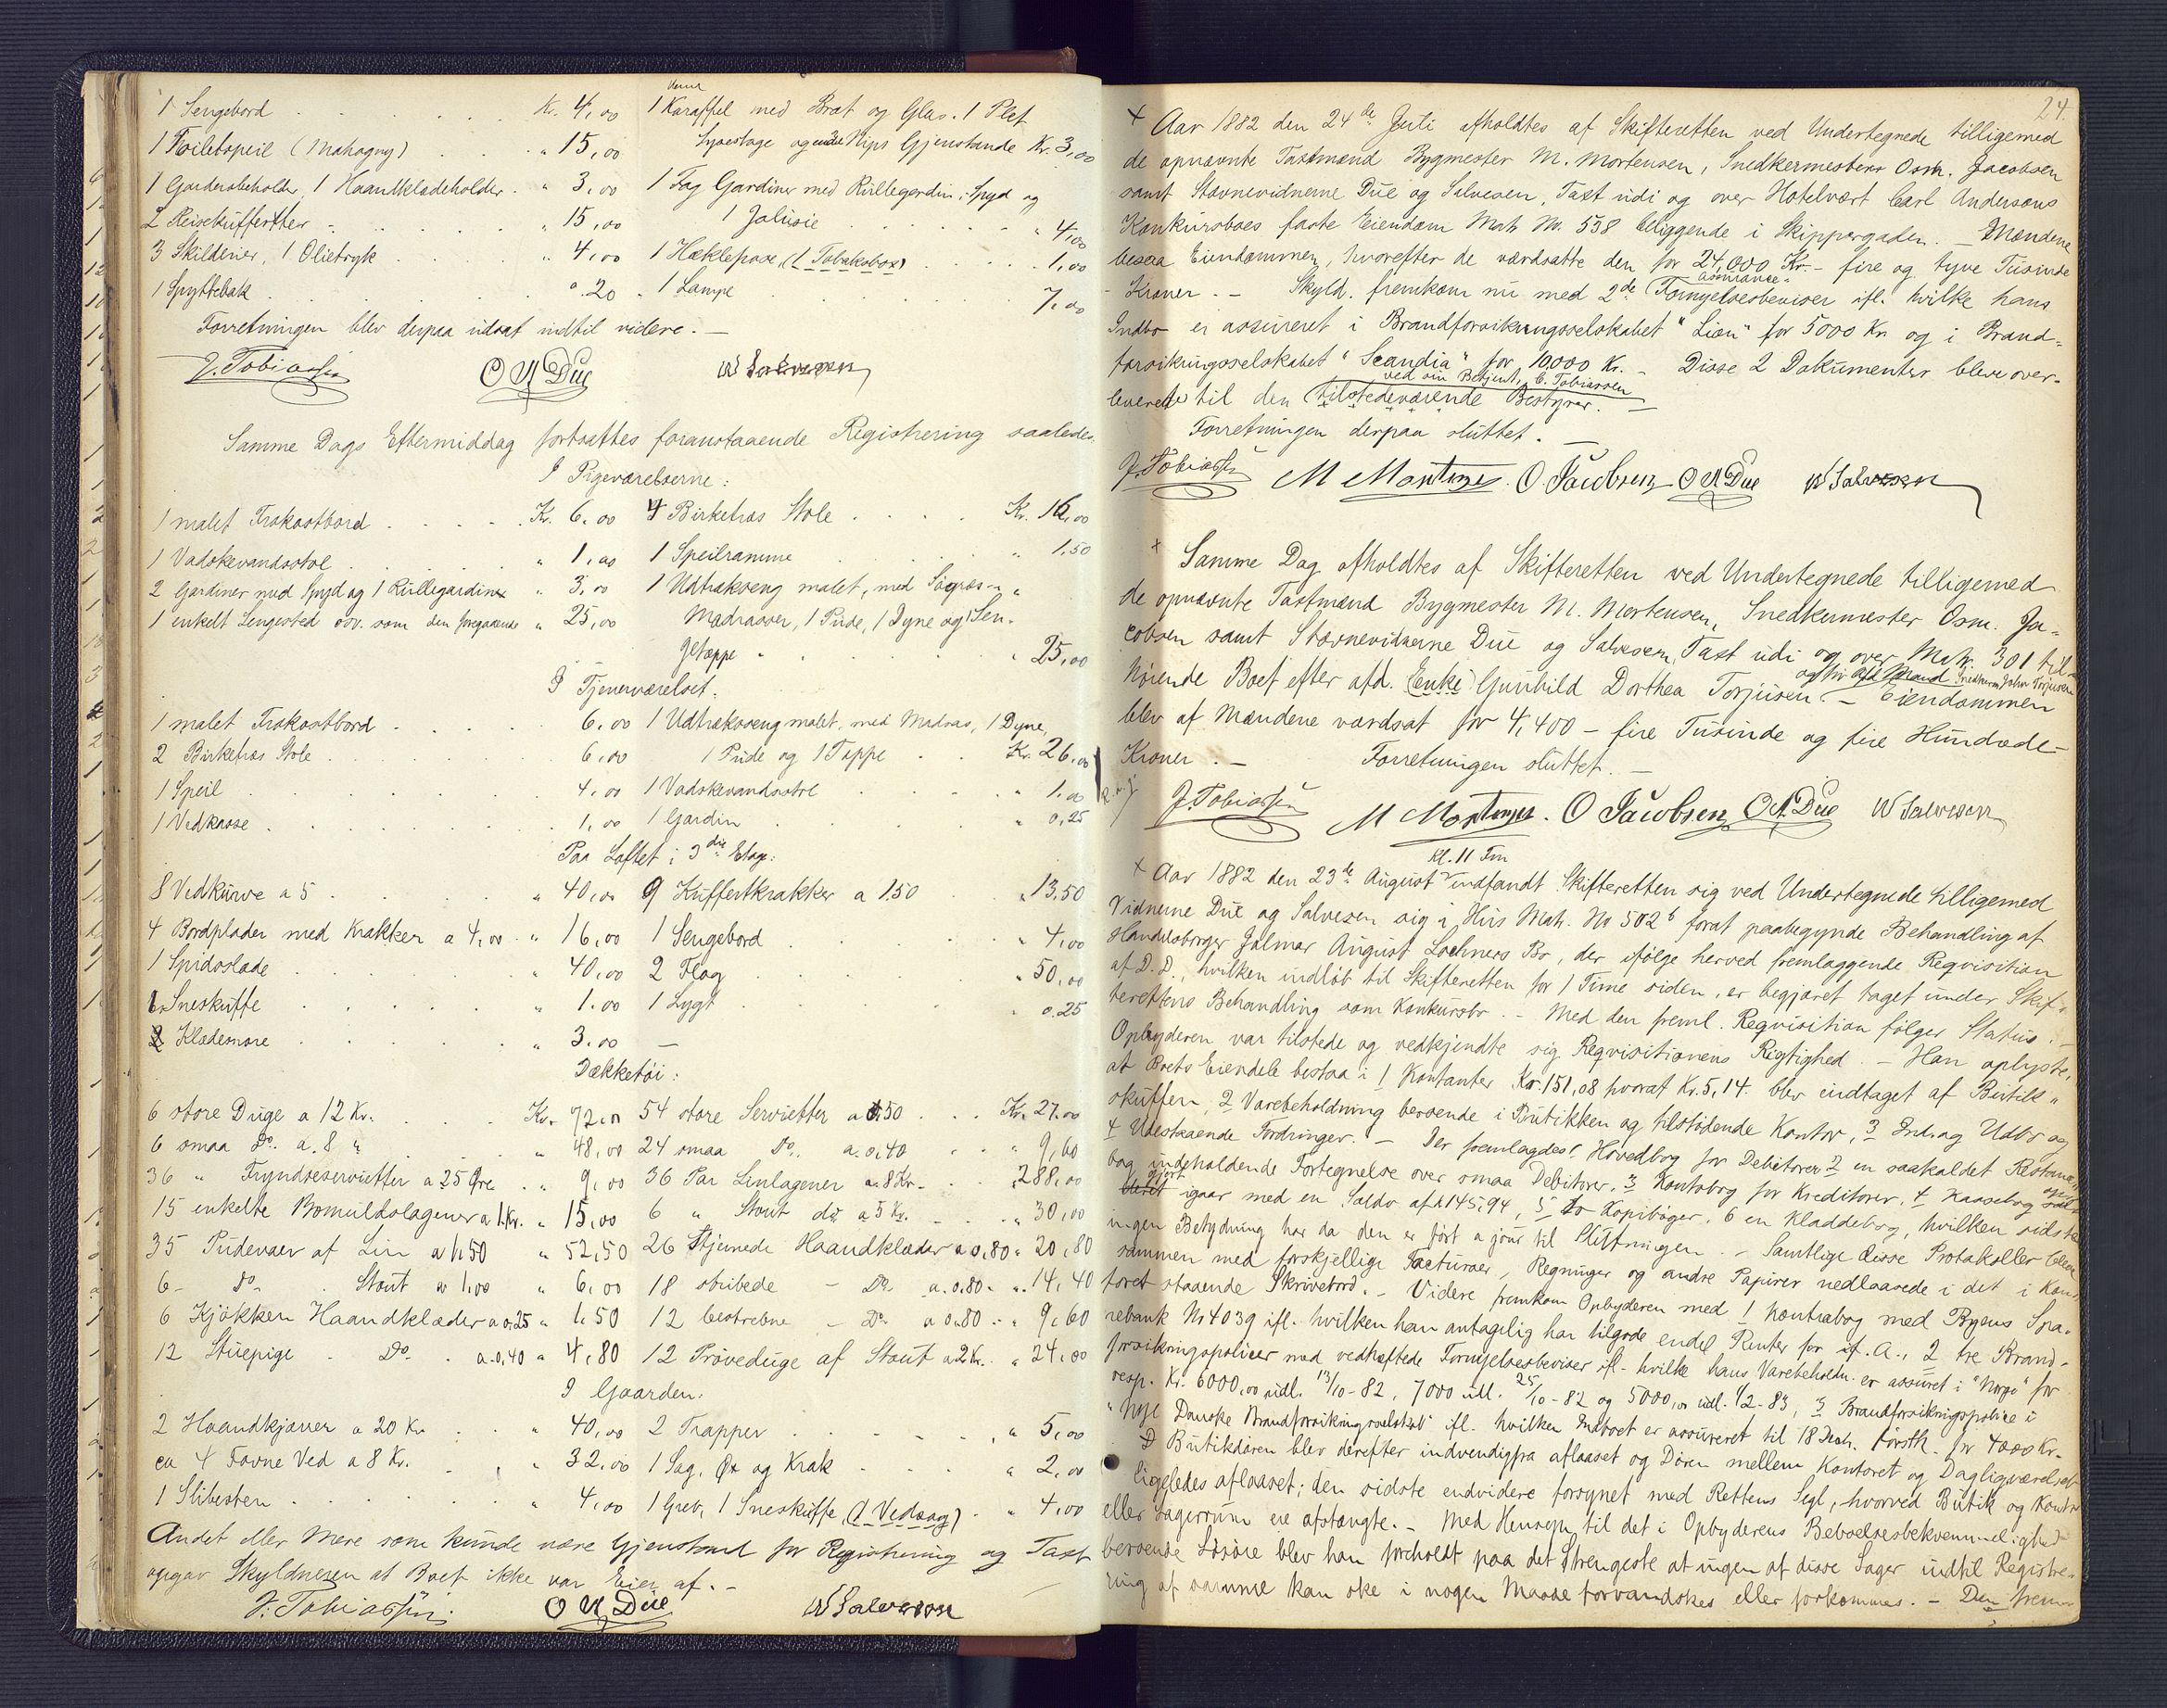 1 Sengebord . . . Kr. 4,00
1 Toiletspeil (Mahogny) . . . " 15,00
1 Garderobeholder, 1 Haandklædeholder . " 3,00
2 Reisekufferter . . . " 15,00
3 Skilderier, 1 Olietryk . . . " 4,00
1 Spyttebak . . . " .20
1 Karaffel med Bræt og Glas. 1 Plet
Lysestage og andre Nips Gjenstande Kr. 3,00
1 Fag Gardiner med Rullegardin, Spyd og
1 Jalusie . . . " 4,00
1 Hæklepose, (1 Tobaksbox) . . . 1,00
1 Lampe . . . 7,00
Forretningen blev derpaa udsat indtil videre. —
J. Tobiassen O N Due W Salvesen
Samme Dags Eftermiddag fortsattes foranstaaende Registrering saaledes
I Pigeværelserne:
1 malet Frokostbord . . . Kr. 6,00
1 Vadskevandsstol . . . " 1,00
2 Gardiner med Spyd og 1 Rullegardin " 3,00
1 enkelt Sengested osv. som den foregaaende " 25,00
4 Birketræs Stole . . . Kr. 16,00
1 Speilramme . . . " 1,50
1 Udtræksseng malet, med Søgræs- "
Madrasser, 1 Pude, 1 Dyne og 1 Sen-
getæppe . . . " 25,00
I Tjenerværelset:
1 malet Frokostbord . . . 6,00
2 Birketræs Stole . . . 6,00
1 Speil . . . 4,00
1 Vedkasse . . . 1,00
1 Udtræksseng malet, med Madras, 1 Dyne,
1 Pude og 1 Tæppe . . Kr. 26,00
1 Vadskevandsstol . . . " 1,00
1 Gardin . . . " 0,25
Paa Loftet i 3die Etage:
8 Vedkurve a 5 . . . " 40,00
4 Bordplader med Krakker a 4,00 . " 16,00
1 Spidsslæde . . . 40,00
1 Sneskuffe . . . " 1.00
2 Klædesnore . . . " 3.00
9 Kuffertkrakker a 1.50 . . " 13,50
1 Sengebord . . . " 4,00
2 Flag . . . " 50,00
1 Lygt . . . " 0.25
Dækketøi:
6 store Duge a 12 Kr. . . . Kr. 72,00
6 smaa Do. a 8 " . . . " 48,00
36 " Fryndseservietter a 25 Øre . " 9,00
15 enkelte Bomuldslagener a 1 Kr. " 15,00
35 Pudevaer af Lin a 1,50 " 52,50
6 - Do - Stout a 1,00 " 6,00
6 Kjøkken Haandklæder a 0.25 " 1.50
12 Stuepige - Do - a 0,40 " 4,80
54 store Servietter a 0,50 . . Kr. 27.00
24 smaa Do. a. 0,40 . . " 9,60
36 Par Linlagener a 8 Kr. . . " 288,00
6 " Stout do a 5 Kr. . . " 30,00
26 Stjernede Haandklæder a 0,80 " 20,80
18 stribede - Do. a. 0.80 . " 14,40
12 bestrebne - Do. a 0.80 . " 9,60
12 Prøveduge af Stout a 2 Kr. . " 24,00
I Gaarden.
2 Haandkjærrer a 20 Kr . . " 40,00
ca 4 Favne Ved a 8 Kr. . . " 32,00
1 Slibesten . . . " 4,00
2 Trapper . . . " 5,00
1 Sag, Øx og Krak . . . " 2,00
1 Greb, 1 Sneskuffe, (1 Vedsag) . " 4,00
Andet eller mere som kunde være Gjenstand for Registrering og Taxt
opgav Skyldneren at Boet ikke var Eier af. —
J. Tobiassen. O N Due W Salvesen
24.
+ Aar 1882 den 24de Juli afholdtes af Skifteretten ved Undertegnede tilligemed
de opnævnte Taxtmænd Bygmester M. Mortensen, Snedkermester Osm. Jacobsen
samt Stævnevidnerne Due og Salvesen, Taxt udi og over Hotelvært Carl Andersens
Konkursboes faste Eiendom Matr. No. 538 beliggende i Skippergaden. — Mændene
besaa Eiendommen, hvorefter de værdsatte den for 24,000 Kr. — fire og tyve Tusinde
Kroner. — Skyld. fremkom nu med 2de Assurance- Fornyelsesbeviser ifl. hvilke hans
Indbo er assureret i Brandforsikringsselskabet "Lion" for 5000 Kr og i Brand-
forsikringsselskabet "Scandia" for 10,000 Kr. — Disse 2 Dokumenter bleve over-
leverede til den tilstedeværende Bestyrer. ved sin Betjent, C. Tobiassen —
Forretningen derpaa sluttet. —
J. Tobiassen M Mortensen. O. Jacobsen O N Due W Salvesen
+ Samme Dag afholdtes af Skifteretten ved Undertegnede tilligemed
de opnævnte Taxtmænd Bygmester M. Mortensen, Snedkermester Osm. Ja-
cobsen samt Stævnevidnerne Due og Salvesen, Taxt udi og over Matr. 301 til-
hørende Boet efter afd. (Enke) Gunhild Dorthea Torjusen og før afd Mand Snedkerm. John Torjusen. — Eiendommen
blev af Mændene værdsat for 4,400 — fire Tusinde og fire Hundrede —
Kroner. — Forretningen sluttet. —
J Tobiassen M Mortensen. O Jacobsen O N. Due W Salvesen
+ Aar 1882 den 23de August Kl. 11 Fm indfandt Skifteretten sig ved Undertegnede tilligemed
Vidnerne Due og Salvesen sig i Hus Matr. No 502b forat paabegynde Behandling af
Handelsborger Jalmar August Lochners Bo, der ifølge herved fremlæggende Reqvisition
af D. D., hvilken indløb til Skifteretten for 1 Time siden, er begjæret taget under Skif-
terettens Behandling som Konkursbo. — Med den freml. Reqvisition følger Status. —
Opbyderen var tilstede og vedkjendte sig Reqvisitionens Rigtighed. — Han oplyste,
at Boets Eiendele bestaa i 1 Kontanter Kr. 151,08 hvoraf Kr. 5,14. blev indtaget af Butik-
skuffen, 2 Varebeholdning beroende i Butikken og tilstødende Kontor, 3 Indbo og
4 Udestaaende Fordringer. — Der fremlagdes 1 Hovedbog for Debitorer 2 en saakaldet Restance-
bog indeholdende Fortegnelse over smaa Debitorer, 3 Kontobog for Kreditorer, 4 Kassebog
gjort igaar med en Saldo af 145,94, 5 to Kopibøger, 6 en Kladdebog, hvilken sidste
ingen Betydning har da den er ført a jour til Slutningen. — Samtlige disse Protokoller bleve
sammen med forskjellige Facturaer, Regninger og andre Papirer nedlaasede i det i Kon-
toret staaende Skrivebord. — Videre fremkom Opbyderen med 1 Kontrabog med Byens Spa-
rebank No 4039 ifl. hvilken han antagelig har tilgode endel Renter for if. A., 2 tre Brand-
forsikringspoliser med vedhæftede Fornyelsesbeviser ifl. hvilke hans Varebeholdn. er assureret i "Norge" for
resp. Kr. 6000,00 udl. 13/10-82, 7000 udl. 25/10-82 og 5000,00 udl. 1/2-83, 3 Brandforsikringspolice i
"Nye Danske Brandforsikringsselskab" ifl. hvilken Indboet er assureret til 18 Decbr. førstk. for 4000 Kr.
Butikdøren blev derefter indvendigfra aflaaset og Døren mellem Kontoret og Dagligværelset
ligeledes aflaaset; den sidste endvidere forsynet med Rettens Segl, hvorved Butik og Kontor
eller Lagerrum ere afstængte. — Med Hensyn til det i Opbyderens Beboelsesbekvemmelighed
beroende Løsøre blev han foreholdt paa det Strengeste at ingen af disse Sager indtil Registre-
ring af samme kan ske i nogen Maade forvandskes eller forkommes. — Den frem-